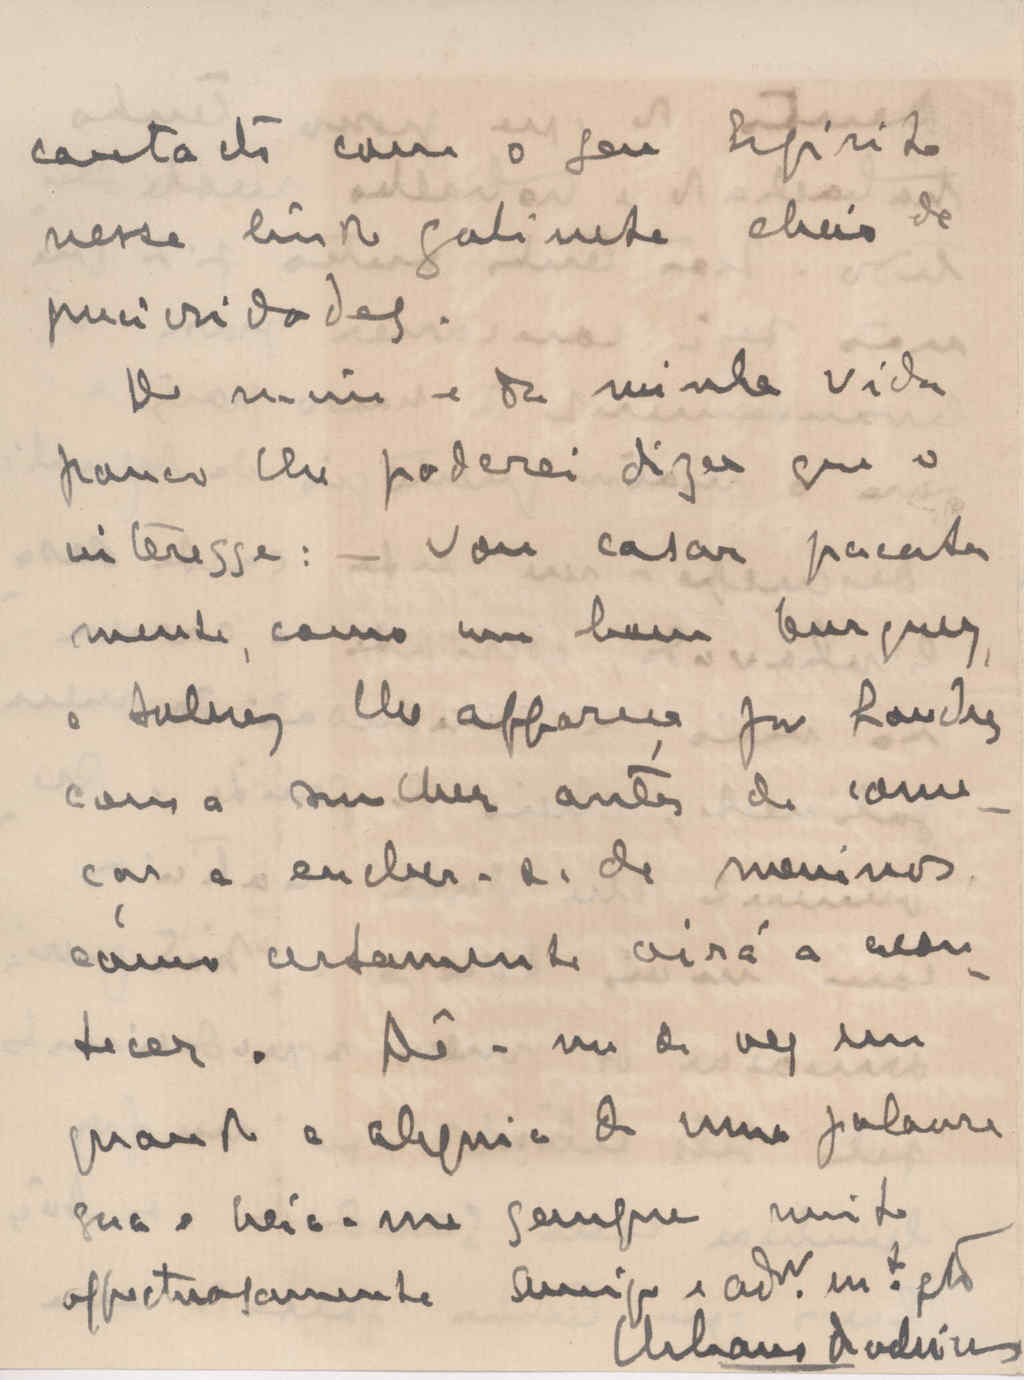 contacto com o seu espirito
nesse lindo gabinete cheio de
preciosidades.
De mim e da minha vida
pouco lhe poderei dizer que o
interesse: — Vou casar pacata
mente, como um bom burguez,
e talvez lhe appareça por Londres
com a mulher antes de come-
çar a encher-se de meninos
como certamente virá a acon-
tecer. Dê-me de vez em
quando a alegria de uma palavra
sua e creia-me sempre muito
affectuosamente amigo e adr. mt. gto
Urbano Rodrigues